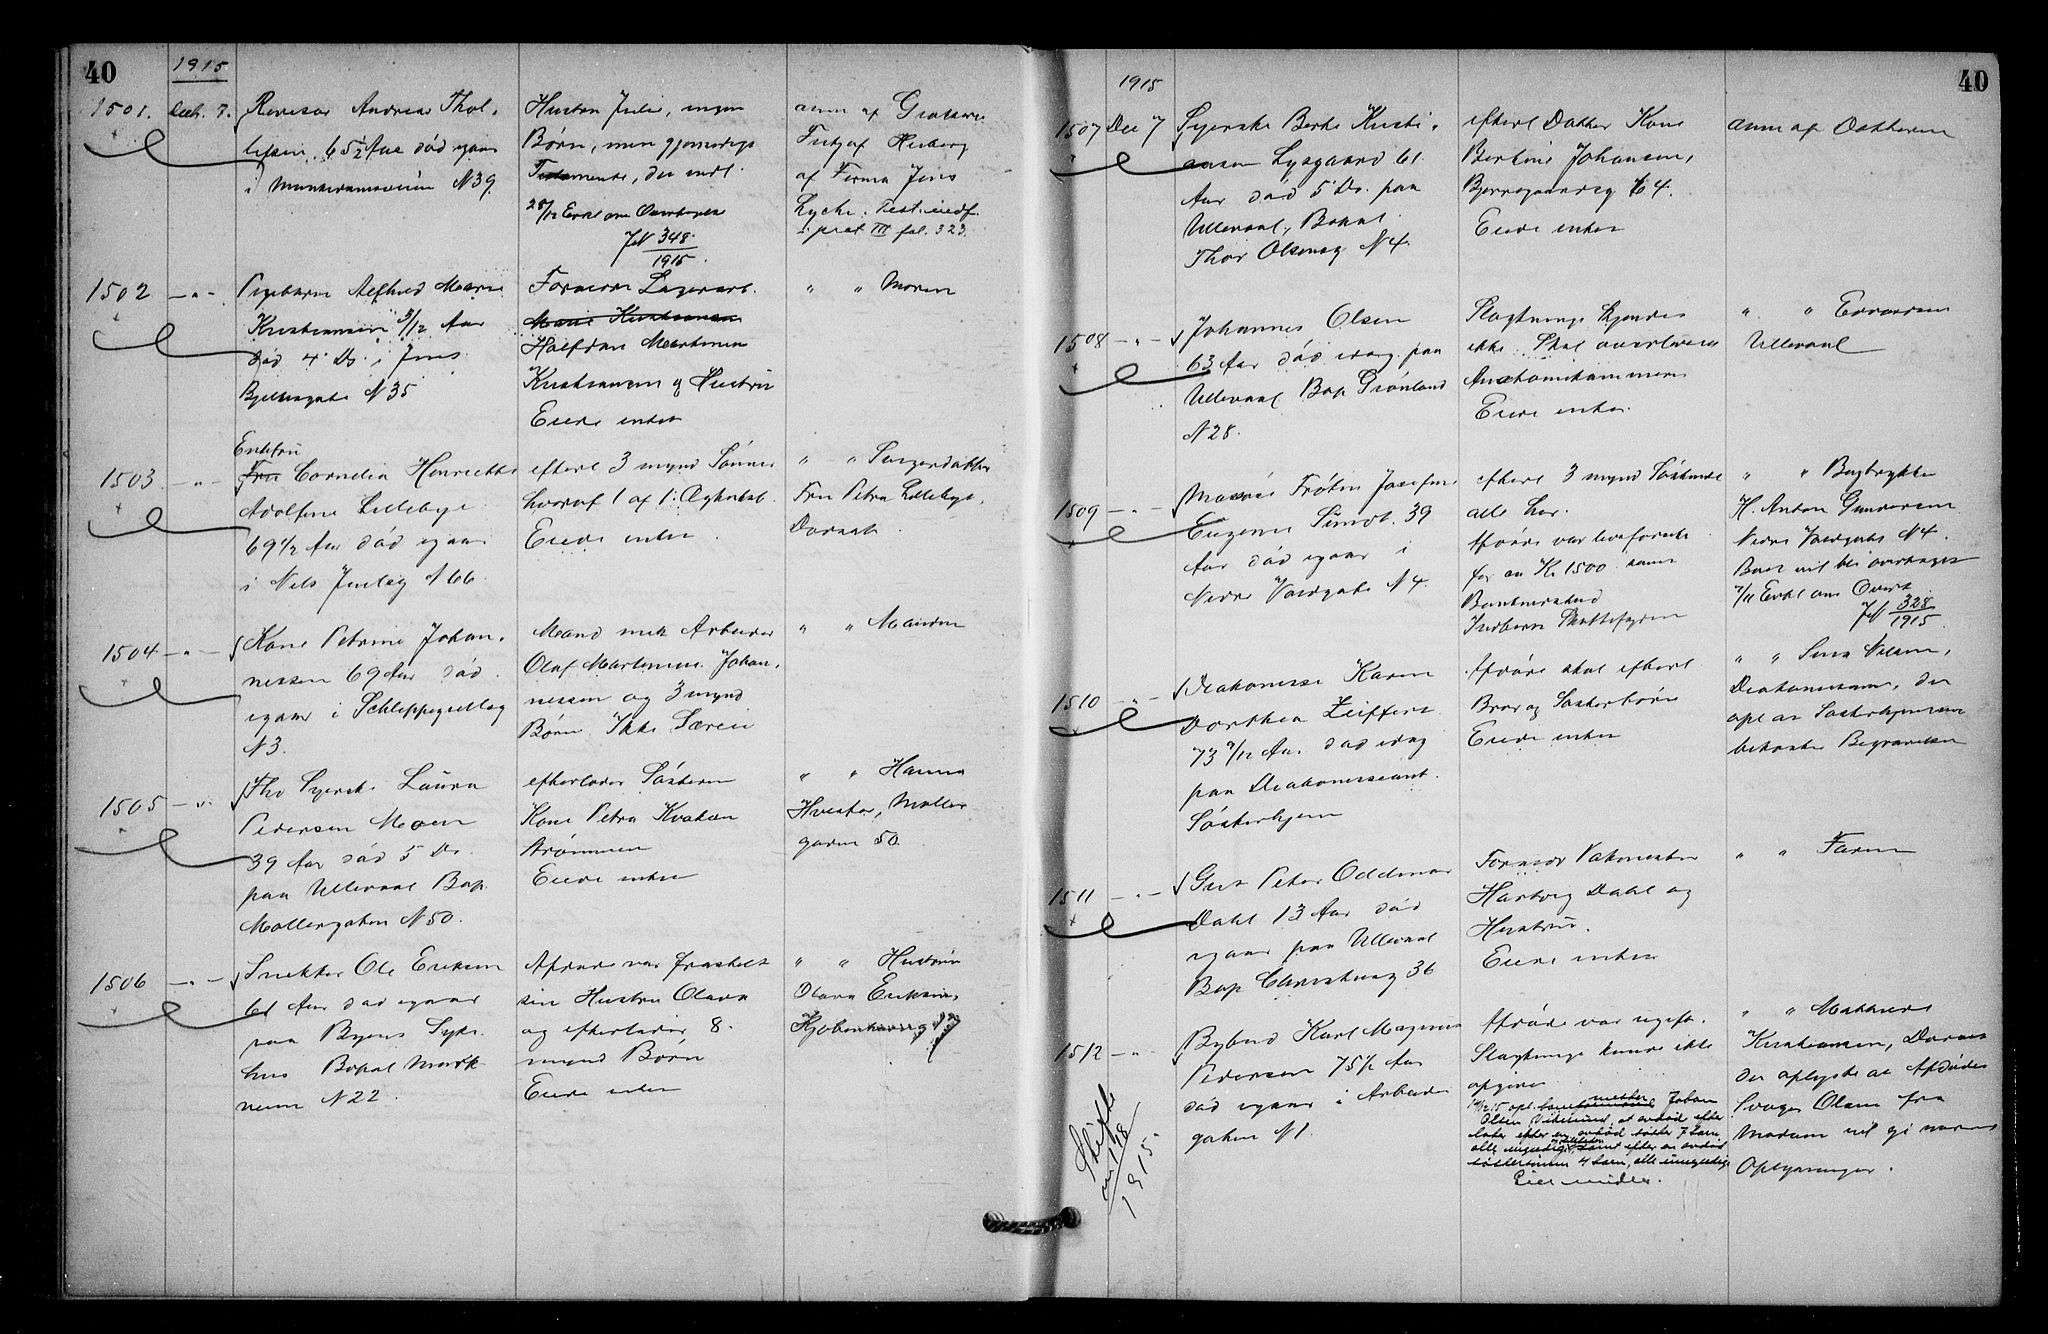 40
1915
1501. Decb. 7. Revisor Andreas Thol-
lefsen 65 1/2 Aar død igaar
i Munkedamsveien N 39
Hustru Julie, ingen
Børn, men gjensidigt
Testamente, der indl.
28/12 Erkl om Overtagelse
JN 348
1915.
anm af Grosserer
af Firma Jens
Lychе. Test. indf.
i prot III fol. 323.
1502 — " — Pigebarn Alfhild Marie
Kristiansen 3/12 Aar
død 4 Ds. i Jens
Bjelkesgate N 35
Forældre Lagerarb.
Marie Kristiansen
Halfdan Martinius
Kristiansen og Hustru
Eiede intet
" " Moren
1503 — " — Enkefru
Fru Cornelia Henriette
Adolfine Lilleby
69 1/2 Aar død igaar
i Nels Juelsg N 66.
efterl 3 mynd Sønner
hvoraf 1 af 1. Ægteskab.
Eiede intet
" " Svigerdatter
Fru Petra Lilleby,
Dersat.
1504 — " — Kone Petrine Johan-
nessen 69 Aar død
igaar i Schleppegrellsg
N 3.
Mand mek Arbeider
Olaf Martinius Johan-
nessen og 3 mynd
Børn Ikke Særeie
" " Manden
1505 — " — Fhv Syersk. Laura
Pedersen Moen
39 Aar død 5 Ds.
paa Ullevaal Bop.
Møllergaten N 50.
efterlader Søsteren
Kone Petra
Strømmen
Eiede intet
" " Hanna
Møller
gaten 50.
1506 — " — Snekker Ole Eriksen
61 Aar død igaar
paa Byens Syke
hus Bopæl Mark
veien N 22
Afdøde var fraskilt
sin Hustru Olava
og efterlader 8
mynd Børn
Eiede intet
" " Hustru
Olava Eriksen,
Kjøbenhavnsg 17
40
1915
1507 Dec 7 Syerske Berte Kristi-
ansen Lysgaard 61
Aar død 5 Ds. paa
Ullevaal, Bopæl
Thor Olsensg N 4.
efterl Datter Kone
Bertine Johansen,
Bjerregaardsg 64.
Eiede intet
anm af Datteren
1508 — " — Johannes Olsen
63 Aar død idag paa
Ullevaal Bop Grønland
N 28.
Slægtninge kjendes
ikke. Skal overleveres
Anatomikammeret
Eiede intet.
" " Edvardsen
Ullevaal
1509 — " — Frøken Josefine
Eugenie 39
Aar død igaar i
Nedre Voldgate N 4.
efterl 3 mynd Søskende
alle her.
Afdøde var livsforsik
for en Kr 1500 samt
Indberet Skattefogden
" " Bogtrykker
H. Anton Gundersen
Nedre Voldgate N 4.
Boet vil bli overtaget
7/11 Erkl om Overt
JN 328
1915.
1510 — " — Diakonisse Karen
Dorthea Zeiffert
73 9/12 Aar død idag
paa Diakonisseanst.
Søsterhjem
Afdøde skal efterl
Bror og Søsterbørn
Eiede intet
" " Nilsen,
Diakonissean, der
opl at Søsterhjemmet
bekoster Begravelsen
1511 — " — Gut Peter Oddmar
Dahl 13 Aar død
igaar paa Ullevaal
Bop 36
Forældre Vaktmester
Hartvig Dahl og
Hustru.
Eiede intet
" " Faren
1512 — " — Bybud Karl Magnus
Pedersen 75 1/2 Aar
død igaar i Arbeider
gaten N 1.
Skifte
1915.
Afdøde var ugift.
Slægtninge kunde ikke
opgives
14/12 15 opl. Johan
Olsen at avdød efter
later efter en avdød søster 7 barn
alle myndige samt efter en avdød
søster 4 barn, alle umyndige
Eier midler.
" " Mathilde
Kristiansen,
der oplyste at Afdødes
Svoger Olsen fra
Modum vil gi nærmere
Oplysninger.